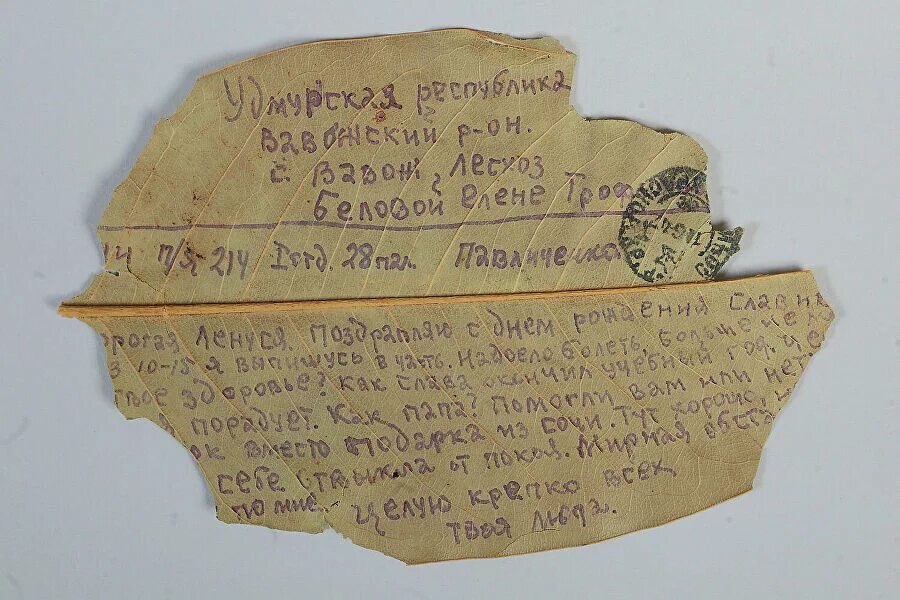 Удмурская республика
Вавожский р-он.
с. Вавож, Лесхоз
Беловой Елене Троф
п/я 214 I отд. 28 пал. Павличенко
орогая Ленуся. Поздравляю с днем рождения Слав
10-15 я выпишусь в часть. Надоело болеть. Больше не
твое здоровье? Как Слава окончил учебный год.
порадует. Как папа? Помогли вам или нет
ок вместо подарка из Сочи. Тут хорошо,
себе отвыкла от покоя. Мирная обста
по мне. Целую крепко всех
твоя Люда.